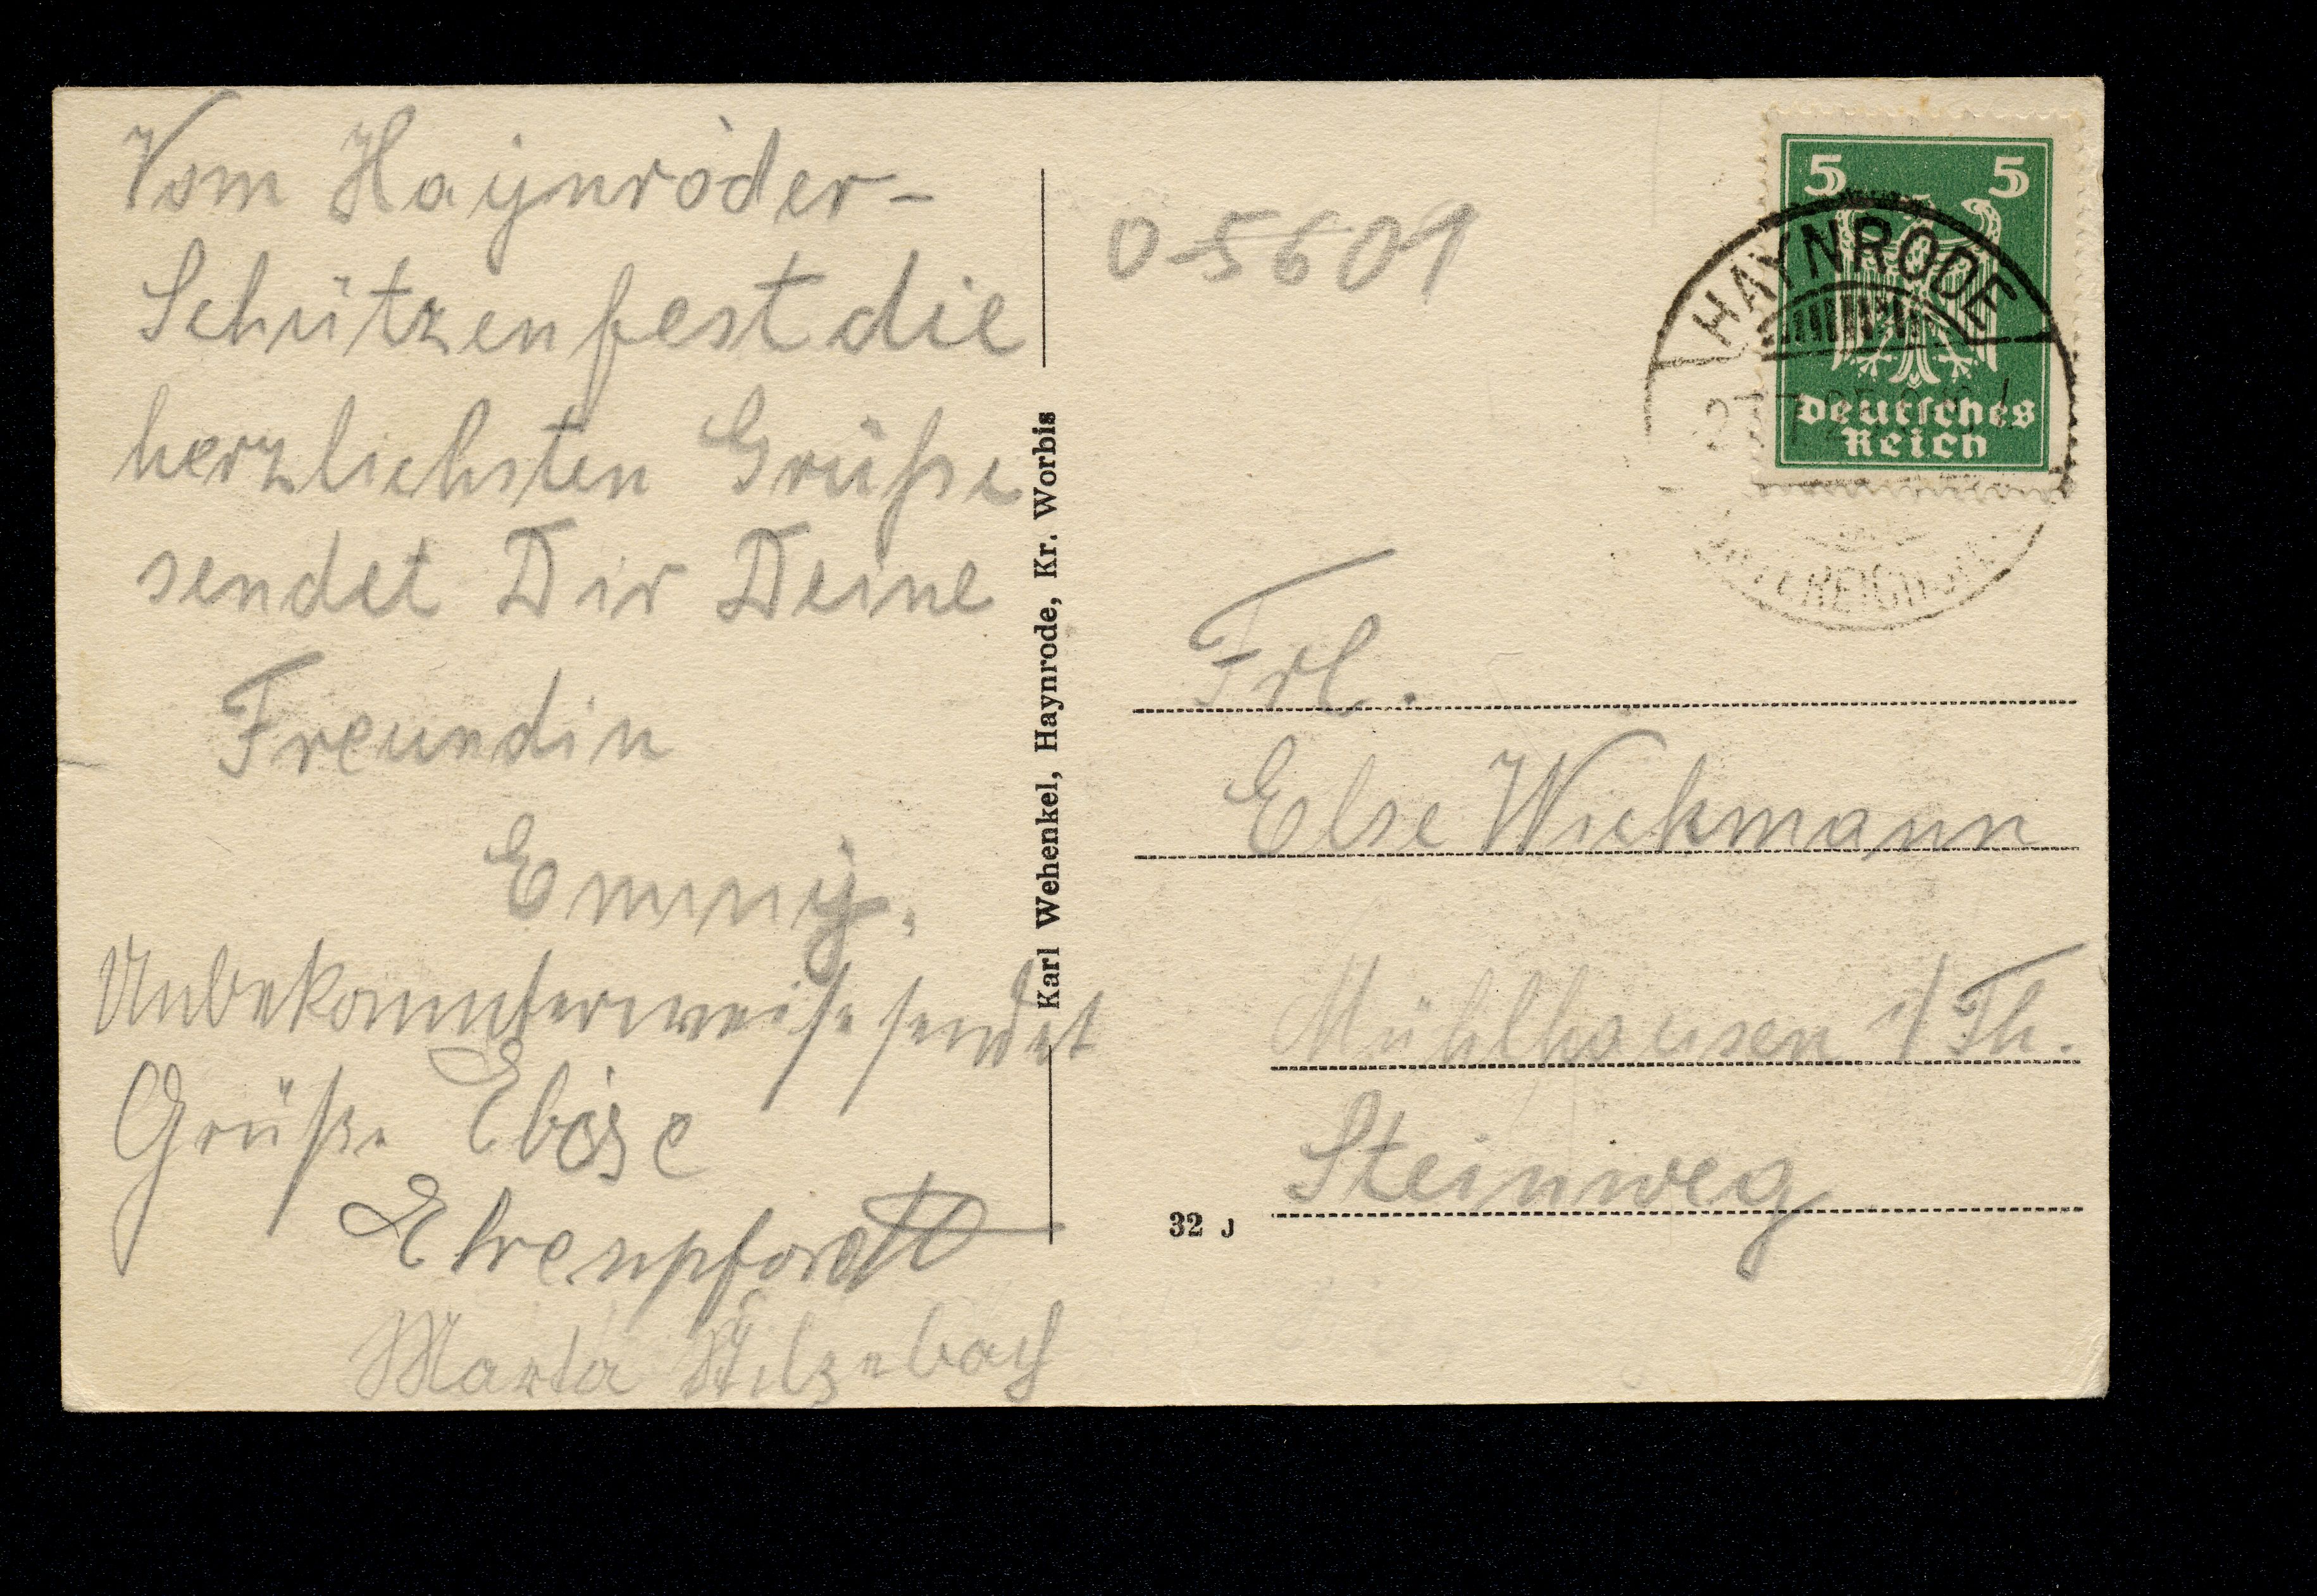 Vom Haynröder-
Schützenfest die
herzlichsten Grüße
sendet Dir Deine
Freundin
Emmy.
Unbekannterweise sendet
Grüße
Ehrenpfordt
Marta
Karl Wehenkel, Haynrode, Kr. Worbis
0-5601
5 5
Deutsches
Reich
HAYNRODE
Frl.
Else Wiekmann
Mühlhausen i/Th.
Steinweg
32 J